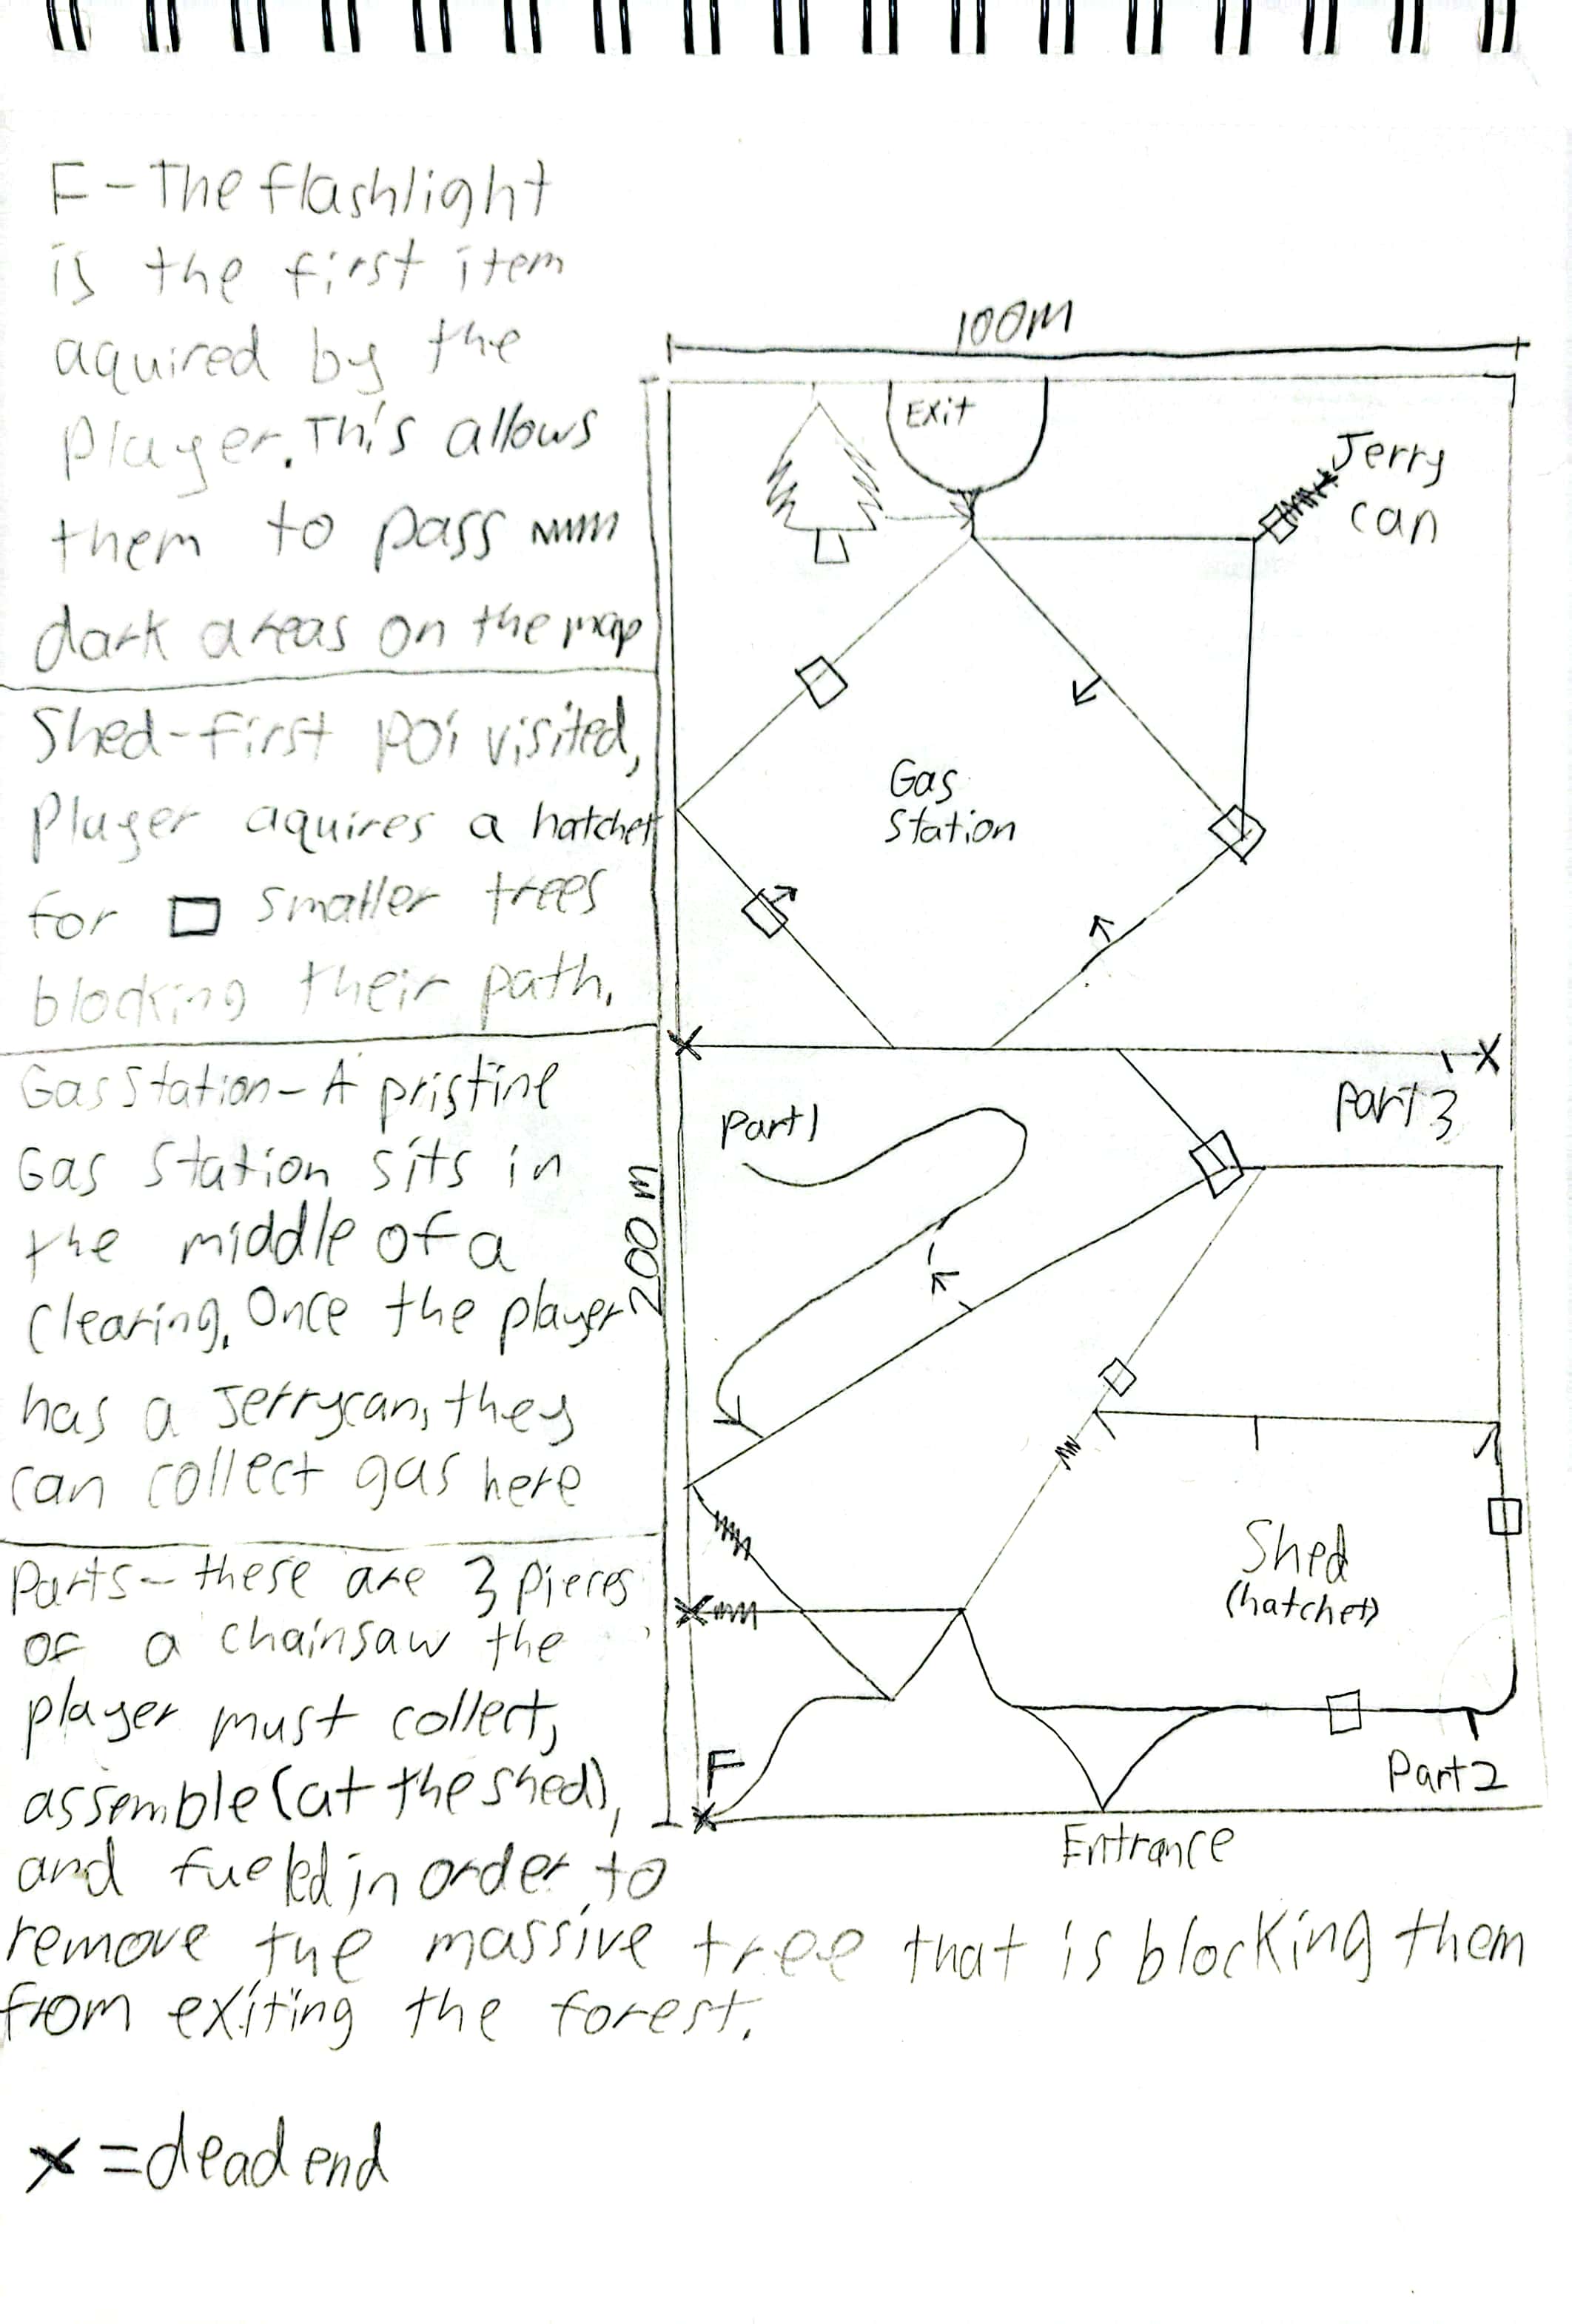 F-The flashlight
is the first item
aquired by the
player. This allows
them to pass
dark areas on the map
Shed-first POi visited,
Player aquires a hatchet
for smaller trees
blocking their path.
Gas Station- A pristine
Gas Station sits in
the middle of a
clearing. Once the player
has a Jerrycan, they
can collect gas here
Parts- these are 3 pieces
of a chainsaw the
player must collect,
assemble (at the shed),
and fueled in order to
remove the massive tree that is blocking them
from exiting the forest.
x = dead end
100M
Exit
Jerry
can
Gas
Station
200 m
Part 1
Part 3
Shed
(hatchet)
F
Part 2
Entrance